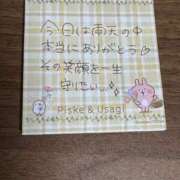 今日は雨天の中
本当にありがとう
その笑顔を一生
守りたい…
Piske & Usagi